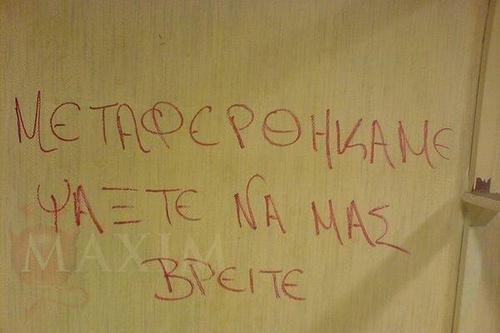 ΜΕΤΑΦΕΡΘΗΚΑΜΕ
ΨΑΞΤΕ ΝΑ ΜΑΣ
MAXIM
ΒΡΕΙΤΕ